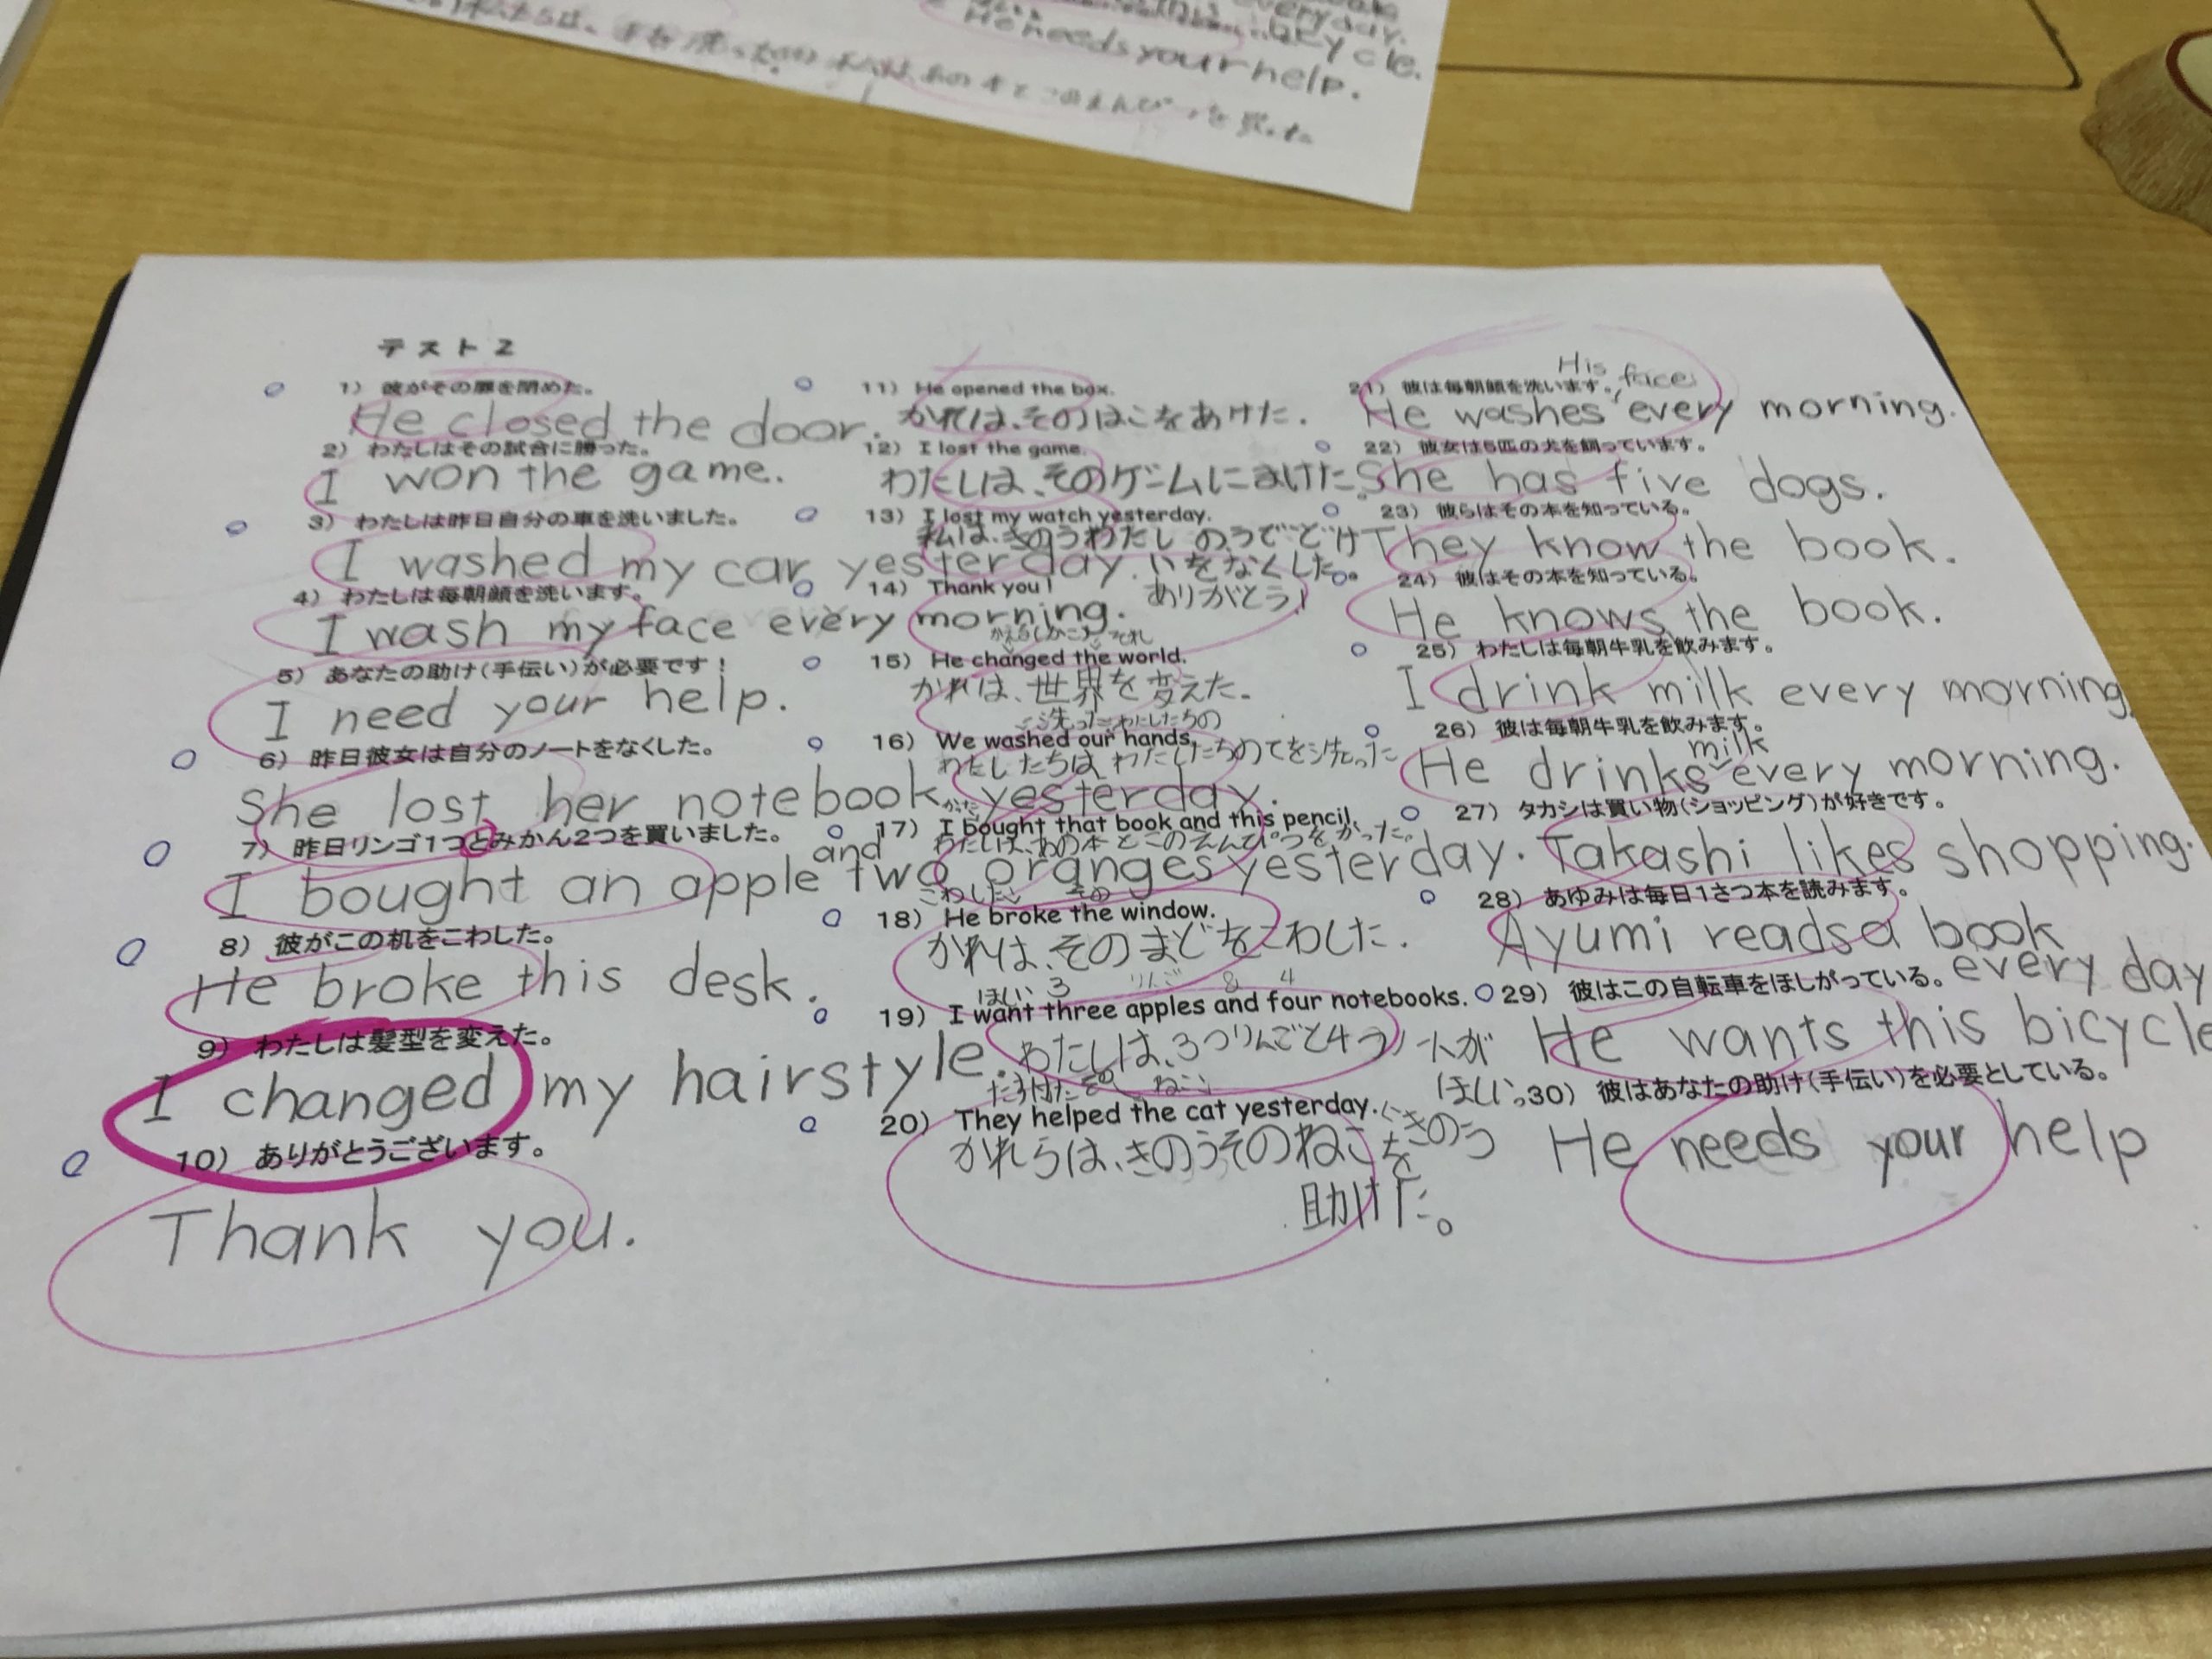 He needs your help.
テスト2
1) 彼がその扉を閉めた。
He closed the door.
2) わたしはその試合に勝った。
I won the game.
3) わたしは昨日自分の車を洗いました。
I washed my car yesterday.
4) わたしは毎朝顔を洗います。
I wash my face every morning.
5) あなたの助け(手伝い)が必要です!
I need your help.
6) 昨日彼女は自分のノートをなくした。
She lost her notebook yesterday.
7) 昨日リンゴ1つとみかん2つを買いました。
and
I bought an apple two oranges yesterday.
8) 彼がこの机をこわした。
He broke this desk.
9) わたしは髪型を変えた。
I changed my hairstyle.
10) ありがとうございます。
Thank you.
11) He opened the box.
かれは、そのはこをあけた.
12) I lost the game.
わたしは、そのゲームにまけた.
13) I lost my watch yesterday.
私は、きのうわたしのうでどけ
いをなくした。
14) Thank you!
ありがとう!
15) He changed the world.
かれは、世界を変えた.
洗った わたしたちの
16) We washed our hands.
わたしたちは わたしたちのてを洗った
17) I bought that book and this pencil.
わたしは、あの本とこのえんぴつをかった。
こわした その
18) He broke the window.
かれは、そのまどをこわした.
ほしい 3 りんご & 4
19) I want three apples and four notebooks.
わたしは、3つりんごと4つノートが
ほしい。
20) They helped the cat yesterday.
きのう
かれらは、きのうそのねこを
助けた。
His face
21) 彼は毎朝顔を洗います。
He washes every morning.
22) 彼女は5匹の犬を飼っています。
She has five dogs.
23) 彼らはその本を知っている。
They know the book.
24) 彼はその本を知っている。
He knows the book.
25) わたしは毎朝牛乳を飲みます。
I drink milk every morning.
26) 彼は毎朝牛乳を飲みます。
milk
He drinks every morning.
27) タカシは買い物(ショッピング)が好きです。
Takashi likes shopping.
28) あゆみは毎日1さつ本を読みます。
Ayumi reads a book
every day
29) 彼はこの自転車をほしがっている。
He wants this bicycle
30) 彼はあなたの助け(手伝い)を必要としている。
He needs your help